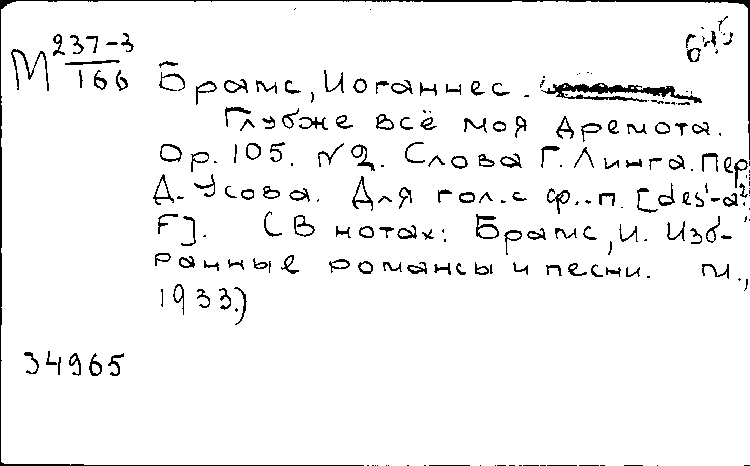 М 237-3
166
Брамс, Иоганнес.
Глубже всё моя дремота.
Op. 105. N 2. Слова Г. Линга. Пер.
Д. Усова. Для гол. с ф.-п. [des¹-a²;
F]. (В нотах: Брамс, И. Изб-
ранные романсы и песни. М.,
1933.)
34965